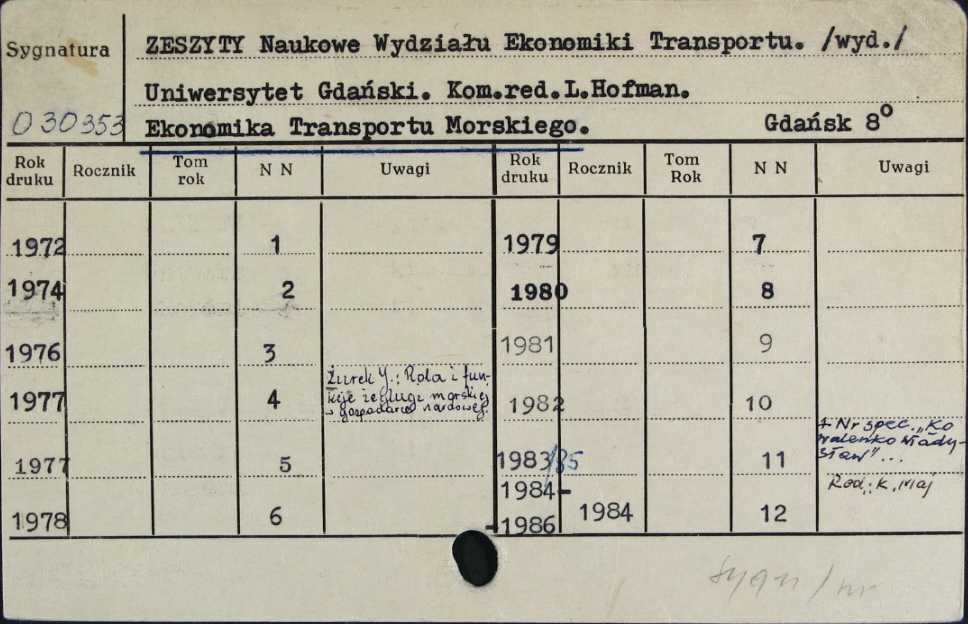 Sygnatura
ZESZYTY Naukowe Wydziału Ekonomiki Transportu. /wyd./
Uniwersytet Gdański. Kom.red.L.Hofman.
030353 Ekonomika Transportu Morskiego. Gdańsk 8º
Rok druku Rocznik Tom rok N N Uwagi Rok druku Rocznik Tom Rok N N Uwagi
1972 1 1979 7
1974 2 1980 8
1976 3 1981 9
1977 4 Żurek J.: Rola i fun-
kcje żeglugi morskiej
w gospodarce narodowej. 1982 10
1977 5 1983/85 11 + Nr spec. „Ko
walenko Włady-
sław"...
1978 6 1984-
-1986 1984 12 Red.: K. Maj
sygn/nr